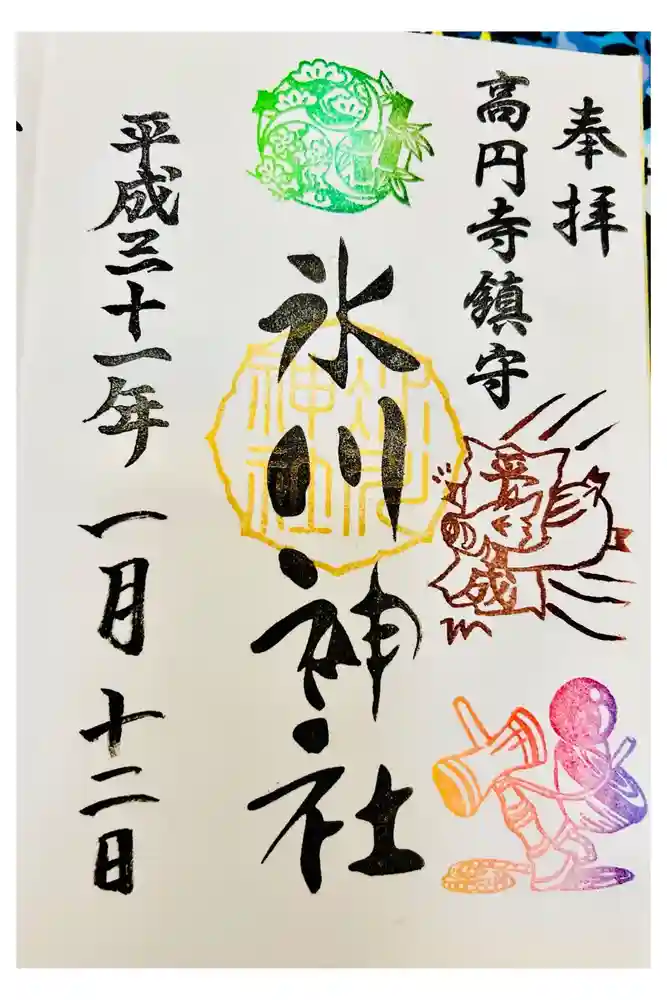 奉拝
高円寺鎮守
平成
氷川神社
氷川神社
平成三十一年 一月 十二日